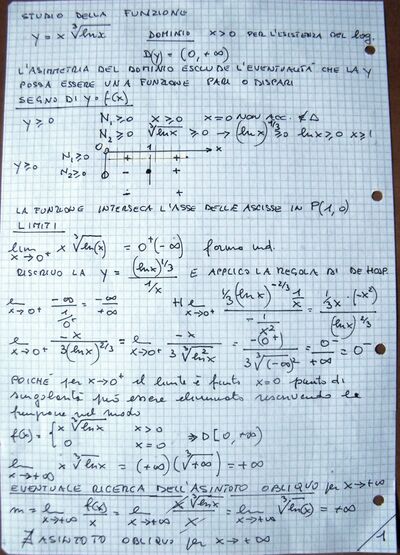 STUDIO DELLA FUNZIONE
y = x ∛lnx   DOMINIO x>0 PER L'ESISTENZA DEL log.
D(y) = (0, +∞)
L'ASIMMETRIA DEL DOMINIO ESCLUDE L'EVENTUALITÀ CHE LA Y
POSSA ESSERE UNA FUNZIONE PARI O DISPARI
SEGNO DI y = f(x)
y ≥ 0   N₁ ≥ 0   x ≥ 0   x = 0 NON ACC. ∉ D
N₂ ≥ 0   ∛lnx ≥ 0 → (lnx)^1/3 ≥ 0   lnx ≥ 0   x ≥ 1
0   1   x
y ≥ 0   N₁ ≥ 0   +   +
N₂ ≥ 0   -   +
-   +
LA FUNZIONE INTERSECA L'ASSE DELLE ASCISSE IN P(1, 0)
LIMITI
lim x→0⁺ x ∛ln(x) = 0⁺(-∞) forma ind.
RISCRIVO LA y = (lnx)^1/3 / 1/x E APPLICO LA REGOLA DI DE HOSP.
lim x→0⁺ -∞ / 1/0⁺ = -∞/+∞   H lim x→0⁺ 1/3 (lnx)^-2/3 1/x / - 1/x² = 1/3x · (-x²) / (lnx)^2/3
lim x→0⁺ -x / 3(lnx)^2/3 = lim x→0⁺ -x / 3 ∛ln²x = -(0⁺) / 3 ∛(-∞)² = 0⁻/+∞ = 0⁻
POICHÉ per x→0⁺ il limite è finito x=0 punto di
singolarità può essere eliminato riscrivendo la
funzione nel modo
f(x) = { x ∛lnx   x > 0
0   x = 0   ⇒ D[0, +∞)
lim x→+∞ x ∛lnx = (+∞)(∛+∞) = +∞
EVENTUALE RICERCA DELL'ASINTOTO OBLIQUO per x→+∞
m = lim x→+∞ f(x)/x = lim x→+∞ x ∛lnx / x = lim x→+∞ ∛ln(x) = +∞
∄ ASINTOTO OBLIQUO per x→+∞
1